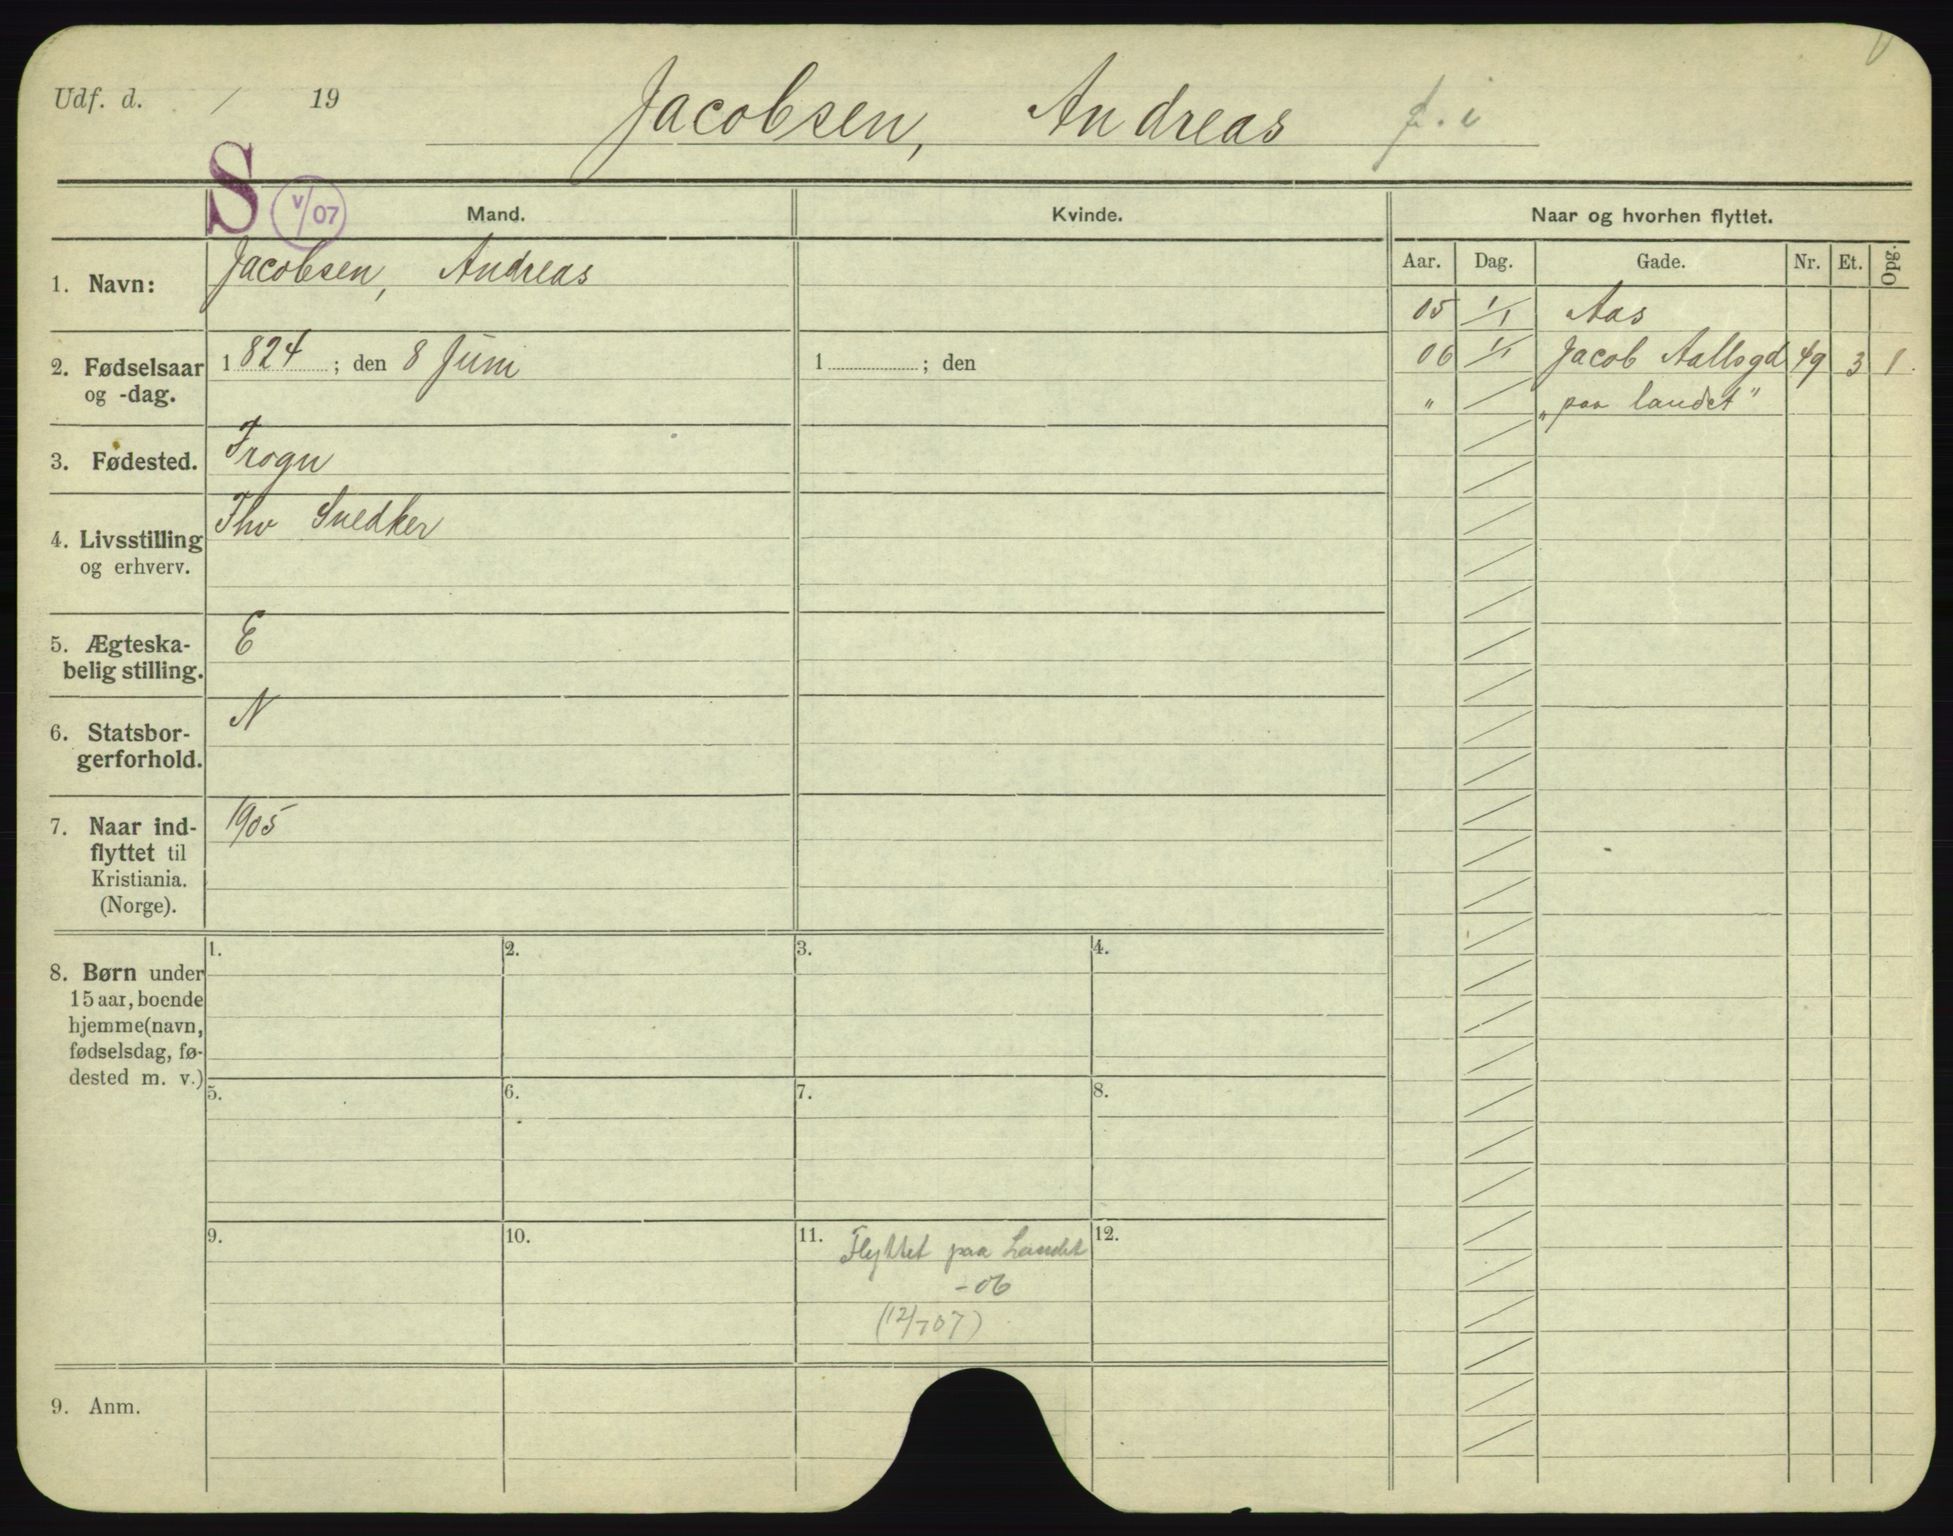 Udf. d. / 19
Jacobsen, Andreas f. i
S V/07
Mand. Kvinde. Naar og hvorhen flyttet.
Aar. Dag. Gade. Nr. Et. Opg.
1. Navn: Jacobsen, Andreas
05 1/1 Aas
2. Fødselsaar og -dag. 1824; den 8 Juni 1 ; den
06 1/1 Jacob Aallsgd 49 3 1
" / "paa landet"
3. Fødested. Frogn
4. Livsstilling og erhverv. Fhv Snedker
5. Ægteska-
belig stilling. E
6. Statsbor-
gerforhold. N
7. Naar ind-
flyttet til
Kristiania.
(Norge). 1905
8. Børn under
15 aar, boende
hjemme (navn,
fødselsdag, fø-
dested m. v.)
1. 2. 3. 4.
5. 6. 7. 8.
9. 10. 11. 12.
Flyttet paa Landet
-06
(12/7 07)
9. Anm.